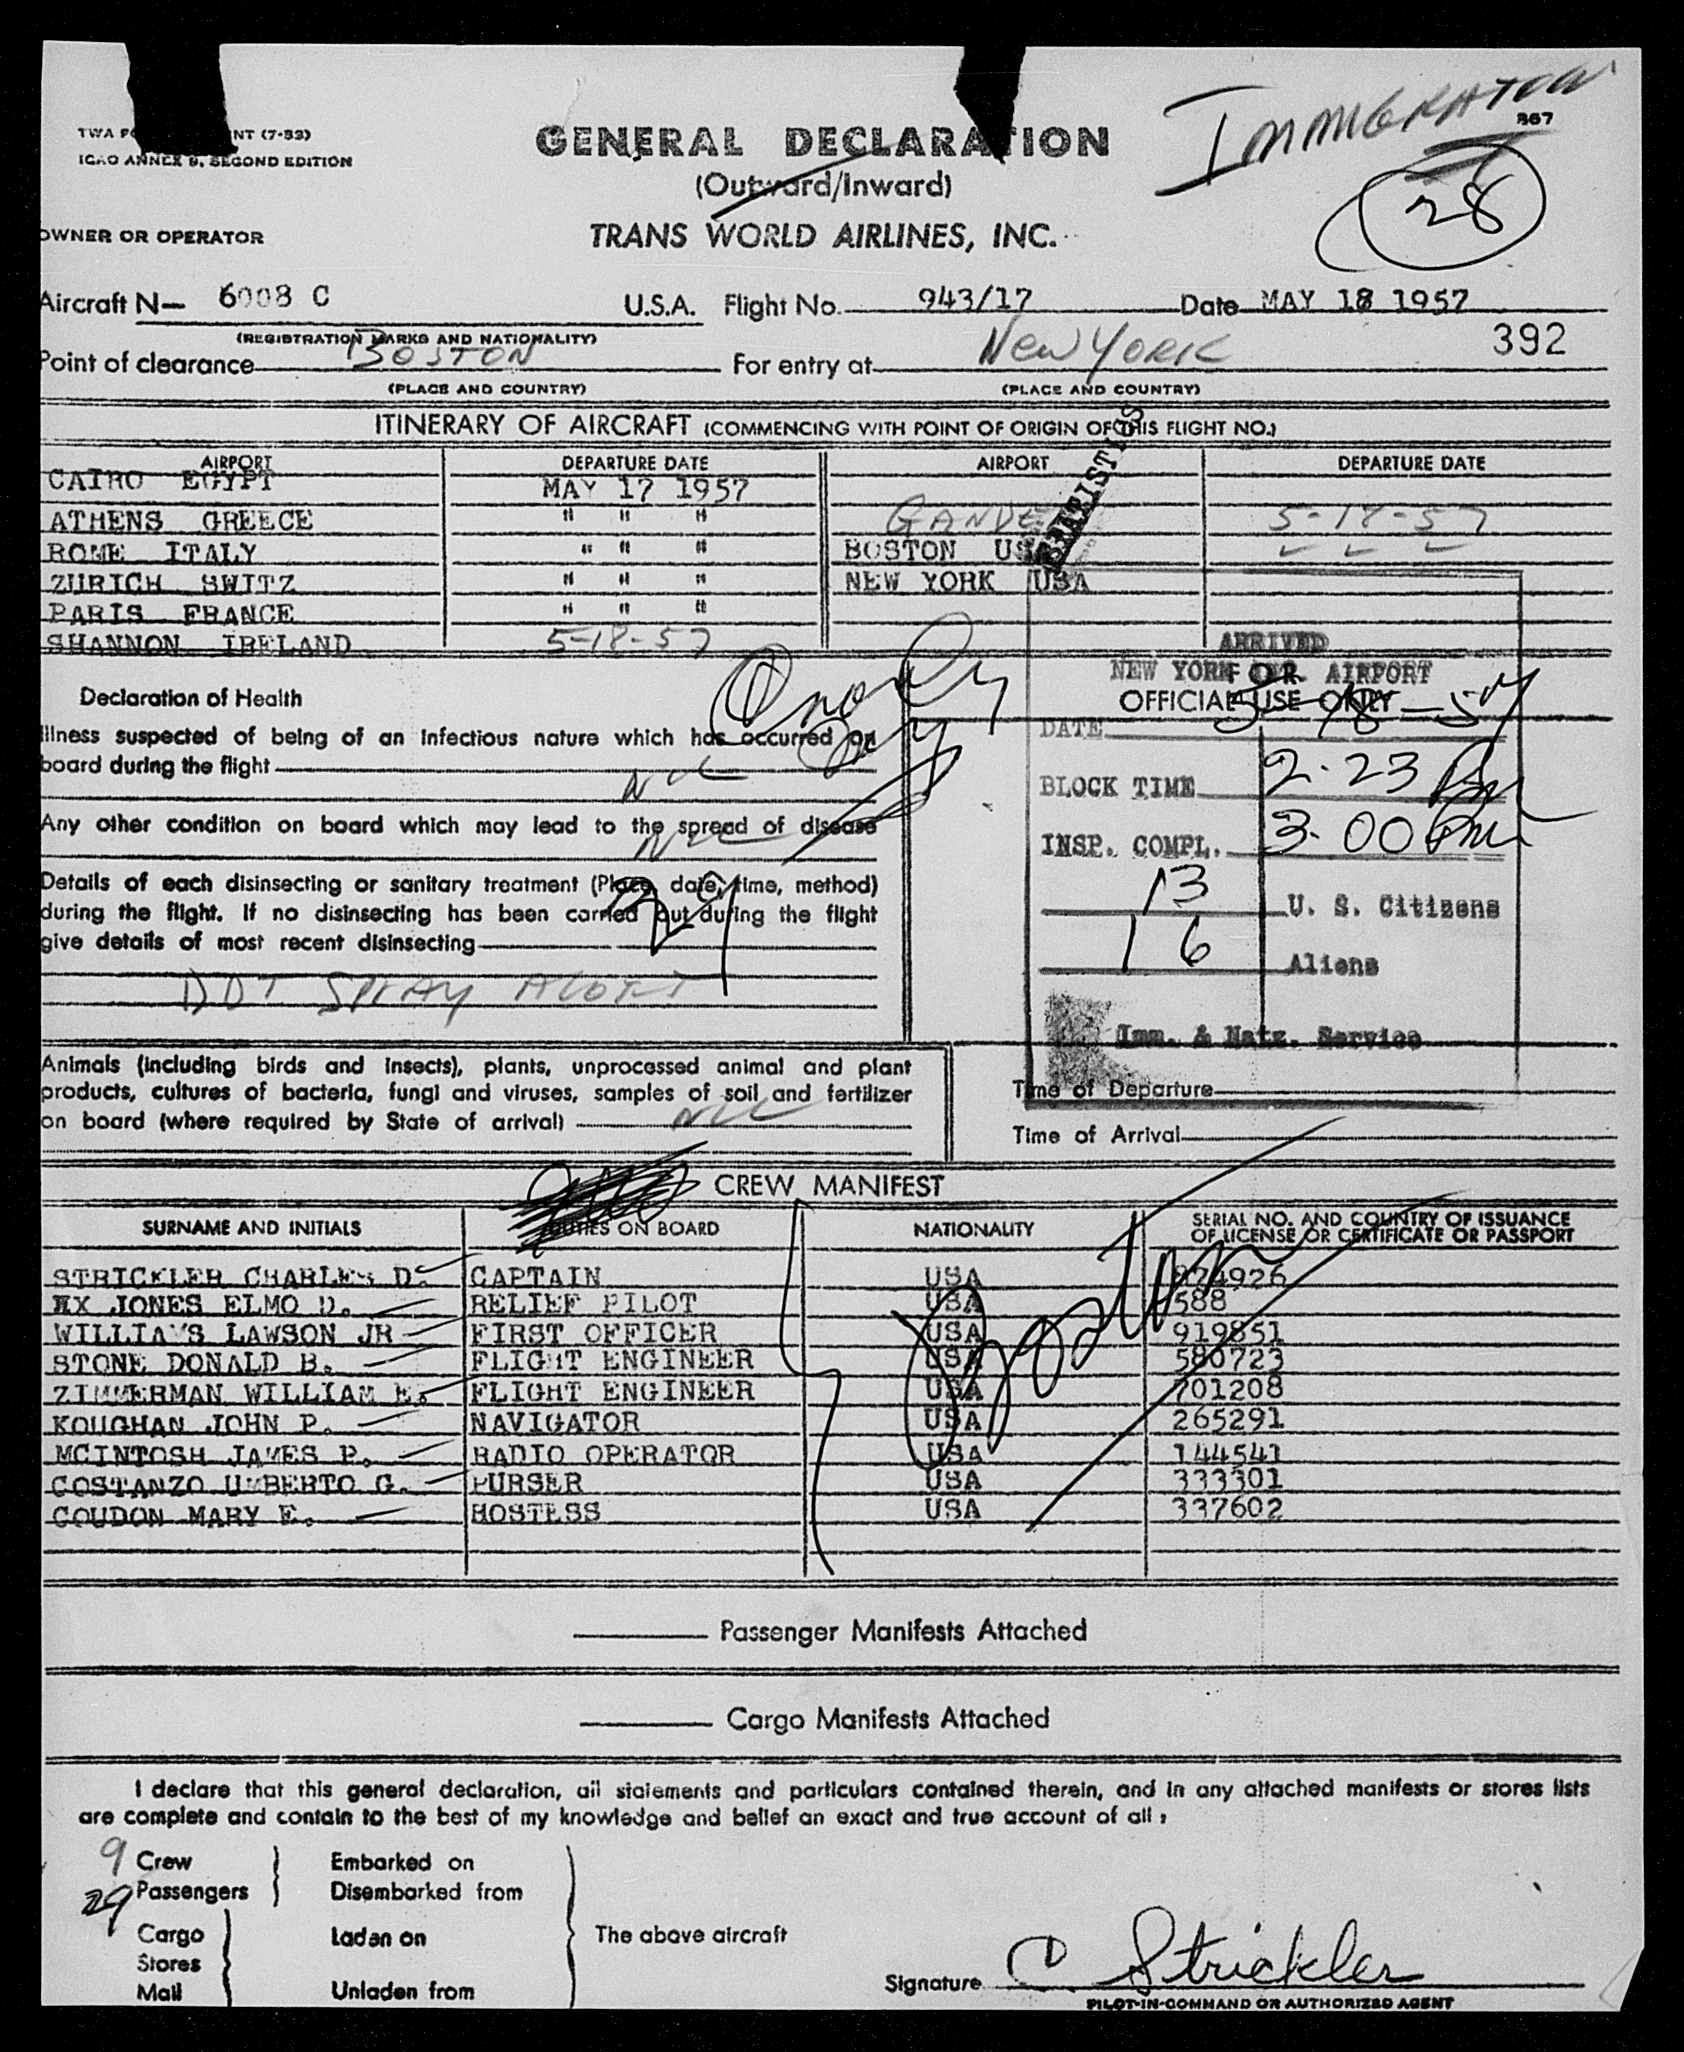 IMMIGRATION
TWA NT (7-53)
367
ICAO ANNEX 9, SECOND EDITION
GENERAL DECLARATION
(Outward/Inward)
28
OWNER OR OPERATOR
TRANS WORLD AIRLINES, INC.
Aircraft N— 6008 C U.S.A. Flight No. 943/17 Date MAY 18 1957
(REGISTRATION MARKS AND NATIONALITY)
392
Point of clearance BOSTON For entry at NEW YORK
(PLACE AND COUNTRY) (PLACE AND COUNTRY)
ITINERARY OF AIRCRAFT (COMMENCING WITH POINT OF ORIGIN OF THIS FLIGHT NO.)
STATISTICS
AIRPORT DEPARTURE DATE AIRPORT DEPARTURE DATE
CAIRO EGYPT MAY 17 1957
ATHENS GREECE " " " GANDE 5-18-57
ROME ITALY " " " BOSTON USA
ZURICH SWITZ " " " NEW YORK USA
PARIS FRANCE " " "
SHANNON IRELAND 5-18-57
ARRIVED
NEW YORK INT. AIRPORT
Declaration of Health
OFFICIAL USE ONLY
DATE 5-18-57
Illness suspected of being of an infectious nature which has occurred on
board during the flight NIL
BLOCK TIME 2.23 Pm
Any other condition on board which may lead to the spread of disease
NIL
INSP. COMPL. 3.00 Pm
Details of each disinsecting or sanitary treatment (Place, date, time, method)
during the flight. If no disinsecting has been carried out during the flight
give details of most recent disinsecting
29
13 U. S. Citizens
16 Aliens
DDT SPRAY ALOFT
Imm. & Natz. Service
Animals (including birds and insects), plants, unprocessed animal and plant
products, cultures of bacteria, fungi and viruses, samples of soil and fertilizer
on board (where required by State of arrival) NIL
Time of Departure
Time of Arrival
CREW MANIFEST
SURNAME AND INITIALS DUTIES ON BOARD NATIONALITY SERIAL NO. AND COUNTRY OF ISSUANCE
OF LICENSE OR CERTIFICATE OR PASSPORT
Boston
STRICKLER CHARLES D. CAPTAIN USA 874926
XX JONES ELMO D. RELIEF PILOT USA 588
WILLIAMS LAWSON JR FIRST OFFICER USA 919851
STONE DONALD B. FLIGHT ENGINEER USA 580723
ZIMMERMAN WILLIAM E. FLIGHT ENGINEER USA 701208
KOUGHAN JOHN P. NAVIGATOR USA 265291
MCINTOSH JAMES P. RADIO OPERATOR USA 144541
COSTANZO UMBERTO G. PURSER USA 333301
COUDON MARY E. HOSTESS USA 337602
Passenger Manifests Attached
Cargo Manifests Attached
I declare that this general declaration, all statements and particulars contained therein, and in any attached manifests or stores lists
are complete and contain to the best of my knowledge and belief an exact and true account of all :
9 Crew Embarked on
29 Passengers Disembarked from
Cargo Laden on The above aircraft
Stores
Mail Unladen from
Signature C Strickler
PILOT-IN-COMMAND OR AUTHORIZED AGENT